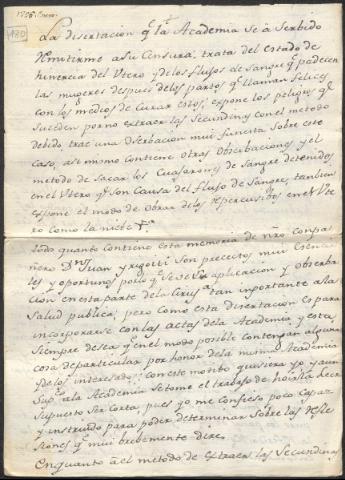 180
La disertacion qe. la Academia se á Serbido
Remitirme a Su Censura, trata del estado de
hinercia del Utero y de los flujos de Sangre qe. padecen
las mugeres despues de los partos qe. llaman felices
con los medios de Curar estos, expone los peligros qe.
Suceden por no extraer las Secundinas con el metodo
debido, trae una observacion mui funesta Sobre este
caso, asi mismo contiene otras observaciones y el
metodo de Sacar los Cuajarones de Sangre detenidos
en el Utero qe. Son Causa del flujo de Sangre, tambien
expone el modo de obrar de los repercusibos en el Ute
ro como la niebe &a.
todo quanto contiene esta memoria de nro. Compa
ñero Dn. Juan Son preceptos mui esencia
les y oportunos por lo qe. se be Su aplicacion y observa
cion en esta parte de la Cirugia tan importante a la
Salud publica; pero como esta disertacion es para
incorporarse con las actas de la Academia y esta
Siempre desea qe. en el modo posible contengan alguna
cosa de particular por honor de la misma Academia
y de los interesados: con este motibo quisiera yo y aun
Supco. a la Academia Se tome el trabajo de hoirla leer
Supuesto Ser Corta, pues yo me confieso poco Capaz
e instruido para poder determinar Sobre las refle
siones qe. mui brebemente dire.
En quanto a el metodo de extraer las Secundinas